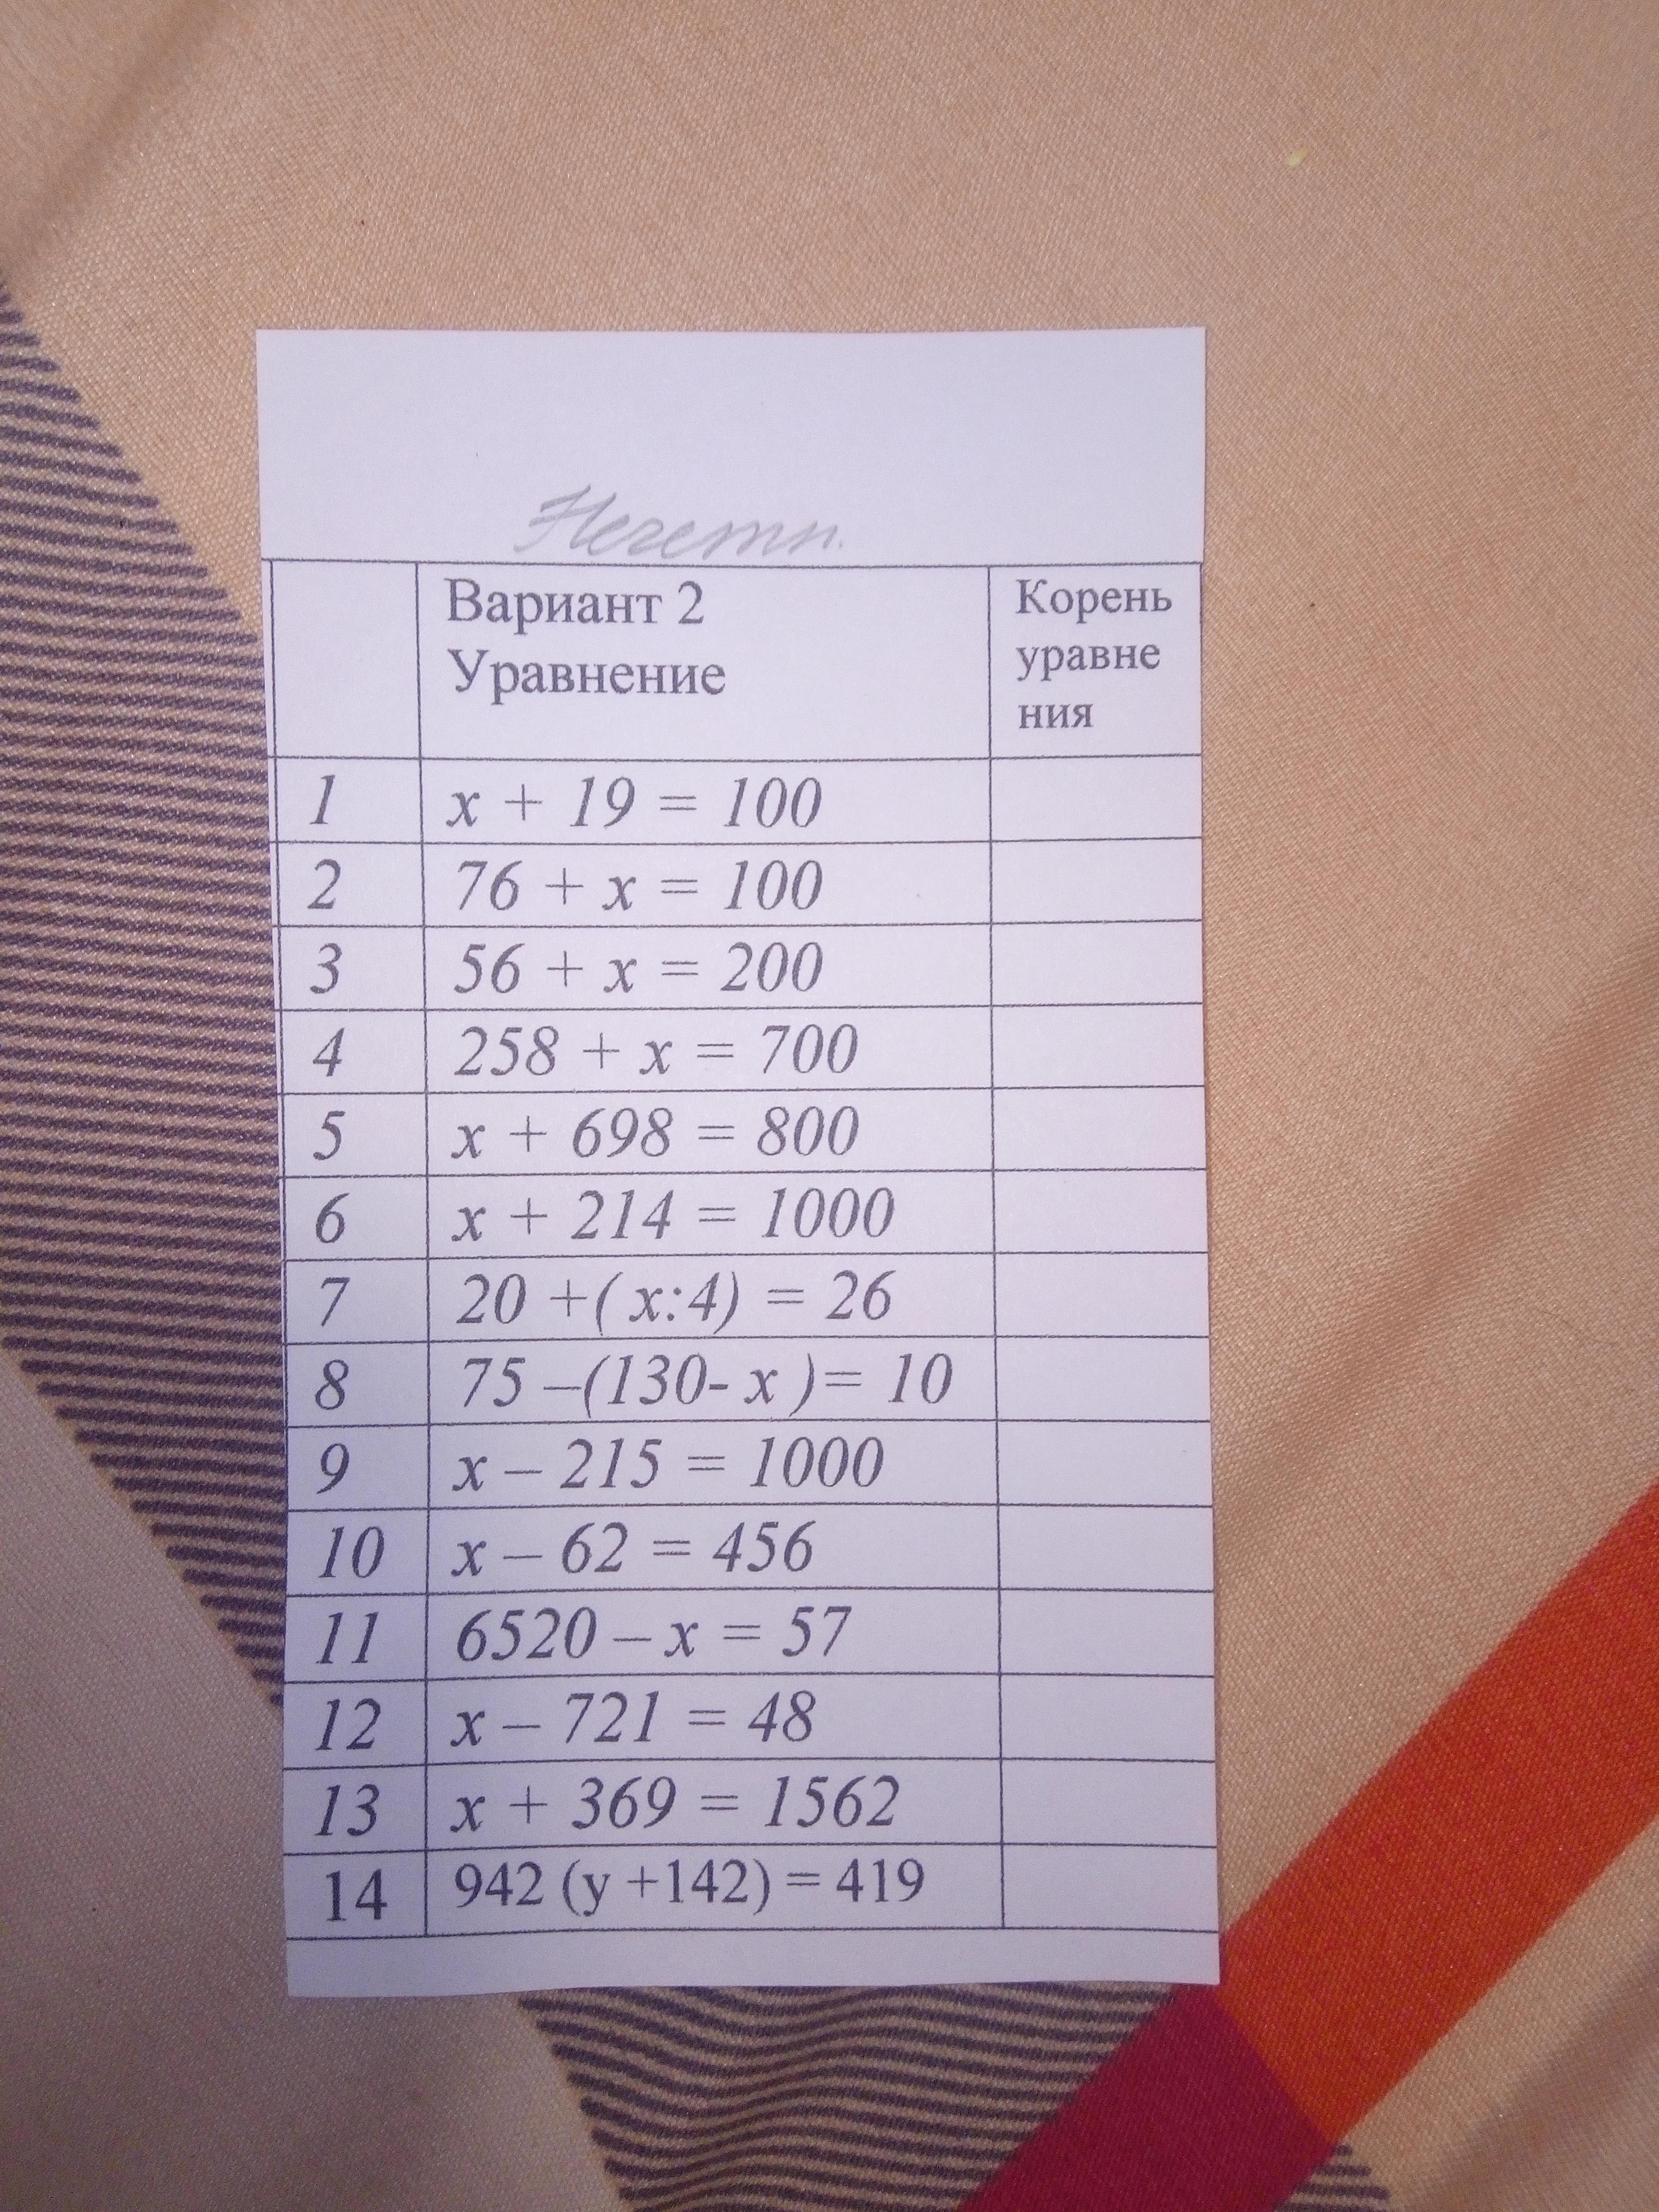 Нечетн.
Вариант 2
Уравнение
Корень
уравне
ния
1 x + 19 = 100
2 76 + x = 100
3 56 + x = 200
4 258 + x = 700
5 x + 698 = 800
6 x + 214 = 1000
7 20 +( x:4) = 26
8 75 –(130- x )= 10
9 x – 215 = 1000
10 x – 62 = 456
11 6520 – x = 57
12 x – 721 = 48
13 x + 369 = 1562
14 942 (y +142) = 419